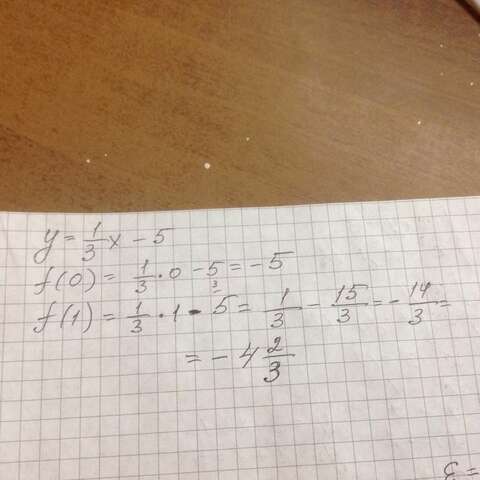 y = 1/3 x - 5
f(0) = 1/3 · 0 - 5 = -5
f(1) = 1/3 · 1 - 5 = 1/3 - 15/3 = -14/3 =
= -4 2/3
ε =